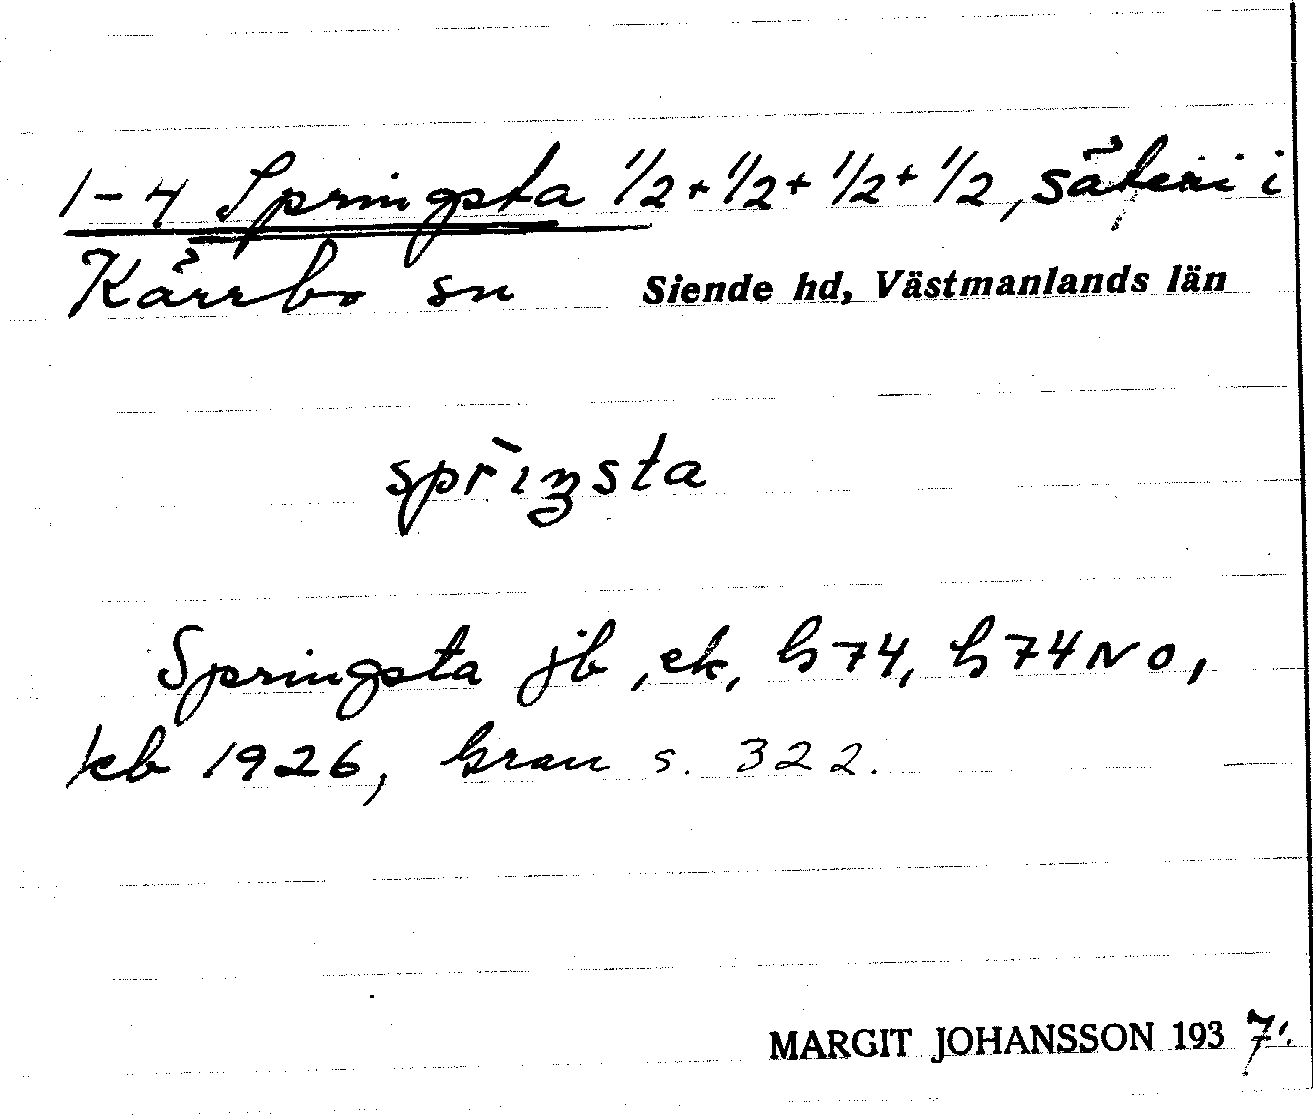 1-4 Springsta 1/2 + 1/2 + 1/2 + 1/2, säteri i
Kärrbo sn Siende hd, Västmanlands län
sprìŋsta
Springsta jb, ek, h 74, h 74 NO,
kb 1926, Gran s. 322.
MARGIT JOHANSSON 1937.